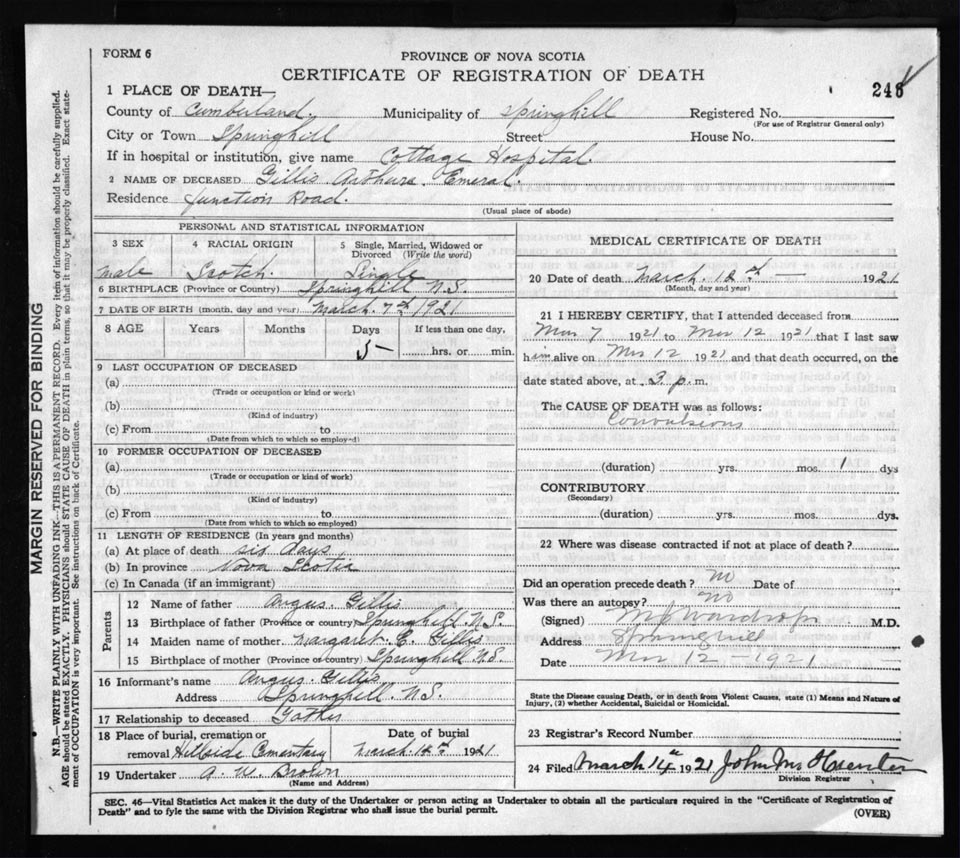 FORM 6
PROVINCE OF NOVA SCOTIA
CERTIFICATE OF REGISTRATION OF DEATH
248
1 PLACE OF DEATH—
County of Cumberland. Municipality of Springhill Registered No.
(For use of Registrar General only)
City or Town Springhill Street House No.
If in hospital or institution, give name Cottage Hospital.
2 NAME OF DECEASED Gillis Arthur Emeral.
Residence Junction Road.
(Usual place of abode)
PERSONAL AND STATISTICAL INFORMATION
3 SEX 4 RACIAL ORIGIN 5 Single, Married, Widowed or Divorced (Write the word)
male Scotch. Single
6 BIRTHPLACE (Province or Country) Springhill N.S.
7 DATE OF BIRTH (month, day and year) March. 7th 1921
8 AGE Years Months Days If less than one day,
5 hrs. or min.
9 LAST OCCUPATION OF DECEASED
(a)
(Trade or occupation or kind or work)
(b)
(Kind of industry)
(c) From to
(Date from which to which so employed)
10 FORMER OCCUPATION OF DECEASED
(a)
(Trade or occupation or kind of work)
(b)
(Kind of industry)
(c) From to
(Date from which to which employed)
11 LENGTH OF RESIDENCE (In years and months)
(a) At place of death six days
(b) In province Nova Scotia
(c) In Canada (if an immigrant)
Parents
12 Name of father Angus. Gillis
13 Birthplace of father (Province or country) Springhill N.S.
14 Maiden name of mother Margaret C. Gillis
15 Birthplace of mother (Province or country) Springhill N.S.
16 Informant's name Angus. Gillis.
Address Springhill N.S.
17 Relationship to deceased Father
18 Place of burial, cremation or Date of burial
removal Hillside Cementary March. 1921
19 Undertaker A. W. Brown
(Name and Address)
MEDICAL CERTIFICATE OF DEATH
20 Date of death March. 12th — 1921
(Month, day and year)
21 I HEREBY CERTIFY, that I attended deceased from
Mar 7 1921 to Mar 12 1921 that I last saw
him alive on Mar 12 1921 and that death occurred, on the
date stated above, at 3 p. m.
The CAUSE OF DEATH was as follows:
Convulsions
(duration) yrs. mos. 1 dys
CONTRIBUTORY
(Secondary)
(duration) yrs. mos. dys.
22 Where was disease contracted if not at place of death?
Did an operation precede death? no Date of
Was there an autopsy? no
(Signed) Wardrope M.D.
Address Springhill
Date Mar 12 — 1921
State the Disease causing Death, or in death from Violent Causes, state (1) Means and Nature of
Injury, (2) whether Accidental, Suicidal or Homicidal.
23 Registrar's Record Number
24 Filed March 14th 1921 John Mc Hunter
Division Registrar
SEC. 46—Vital Statistics Act makes it the duty of the Undertaker or person acting as Undertaker to obtain all the particulars required in the "Certificate of Registration of
Death" and to fyle the same with the Division Registrar who shall issue the burial permit.
(OVER)
MARGIN RESERVED FOR BINDING
N.B.—WRITE PLAINLY WITH UNFADING INK—THIS IS A PERMANENT RECORD. Every item of information should be carefully supplied.
AGE should be stated EXACTLY. PHYSICIANS should STATE CAUSE OF DEATH in plain terms, so that it may be properly classified. Exact state-
ment of OCCUPATION is very important. See instructions on back of Certificate.